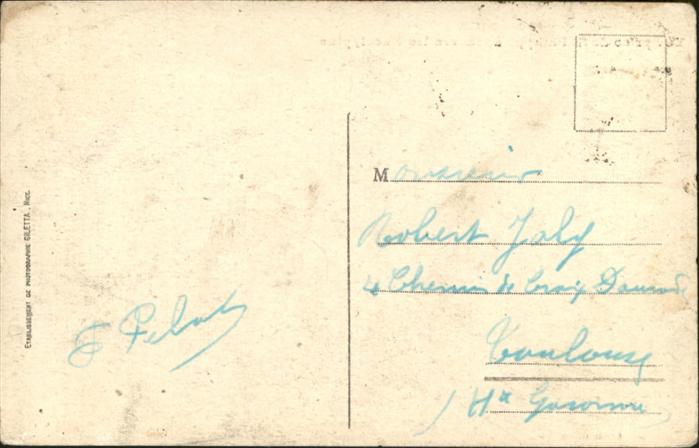 ETABLISSEMENT DE PHOTOGRAPHIE GILETTA, NICE.
Monsieur
Robert Joly
4 Chemin de Croix Daurade
Toulouse
Hte Garonne